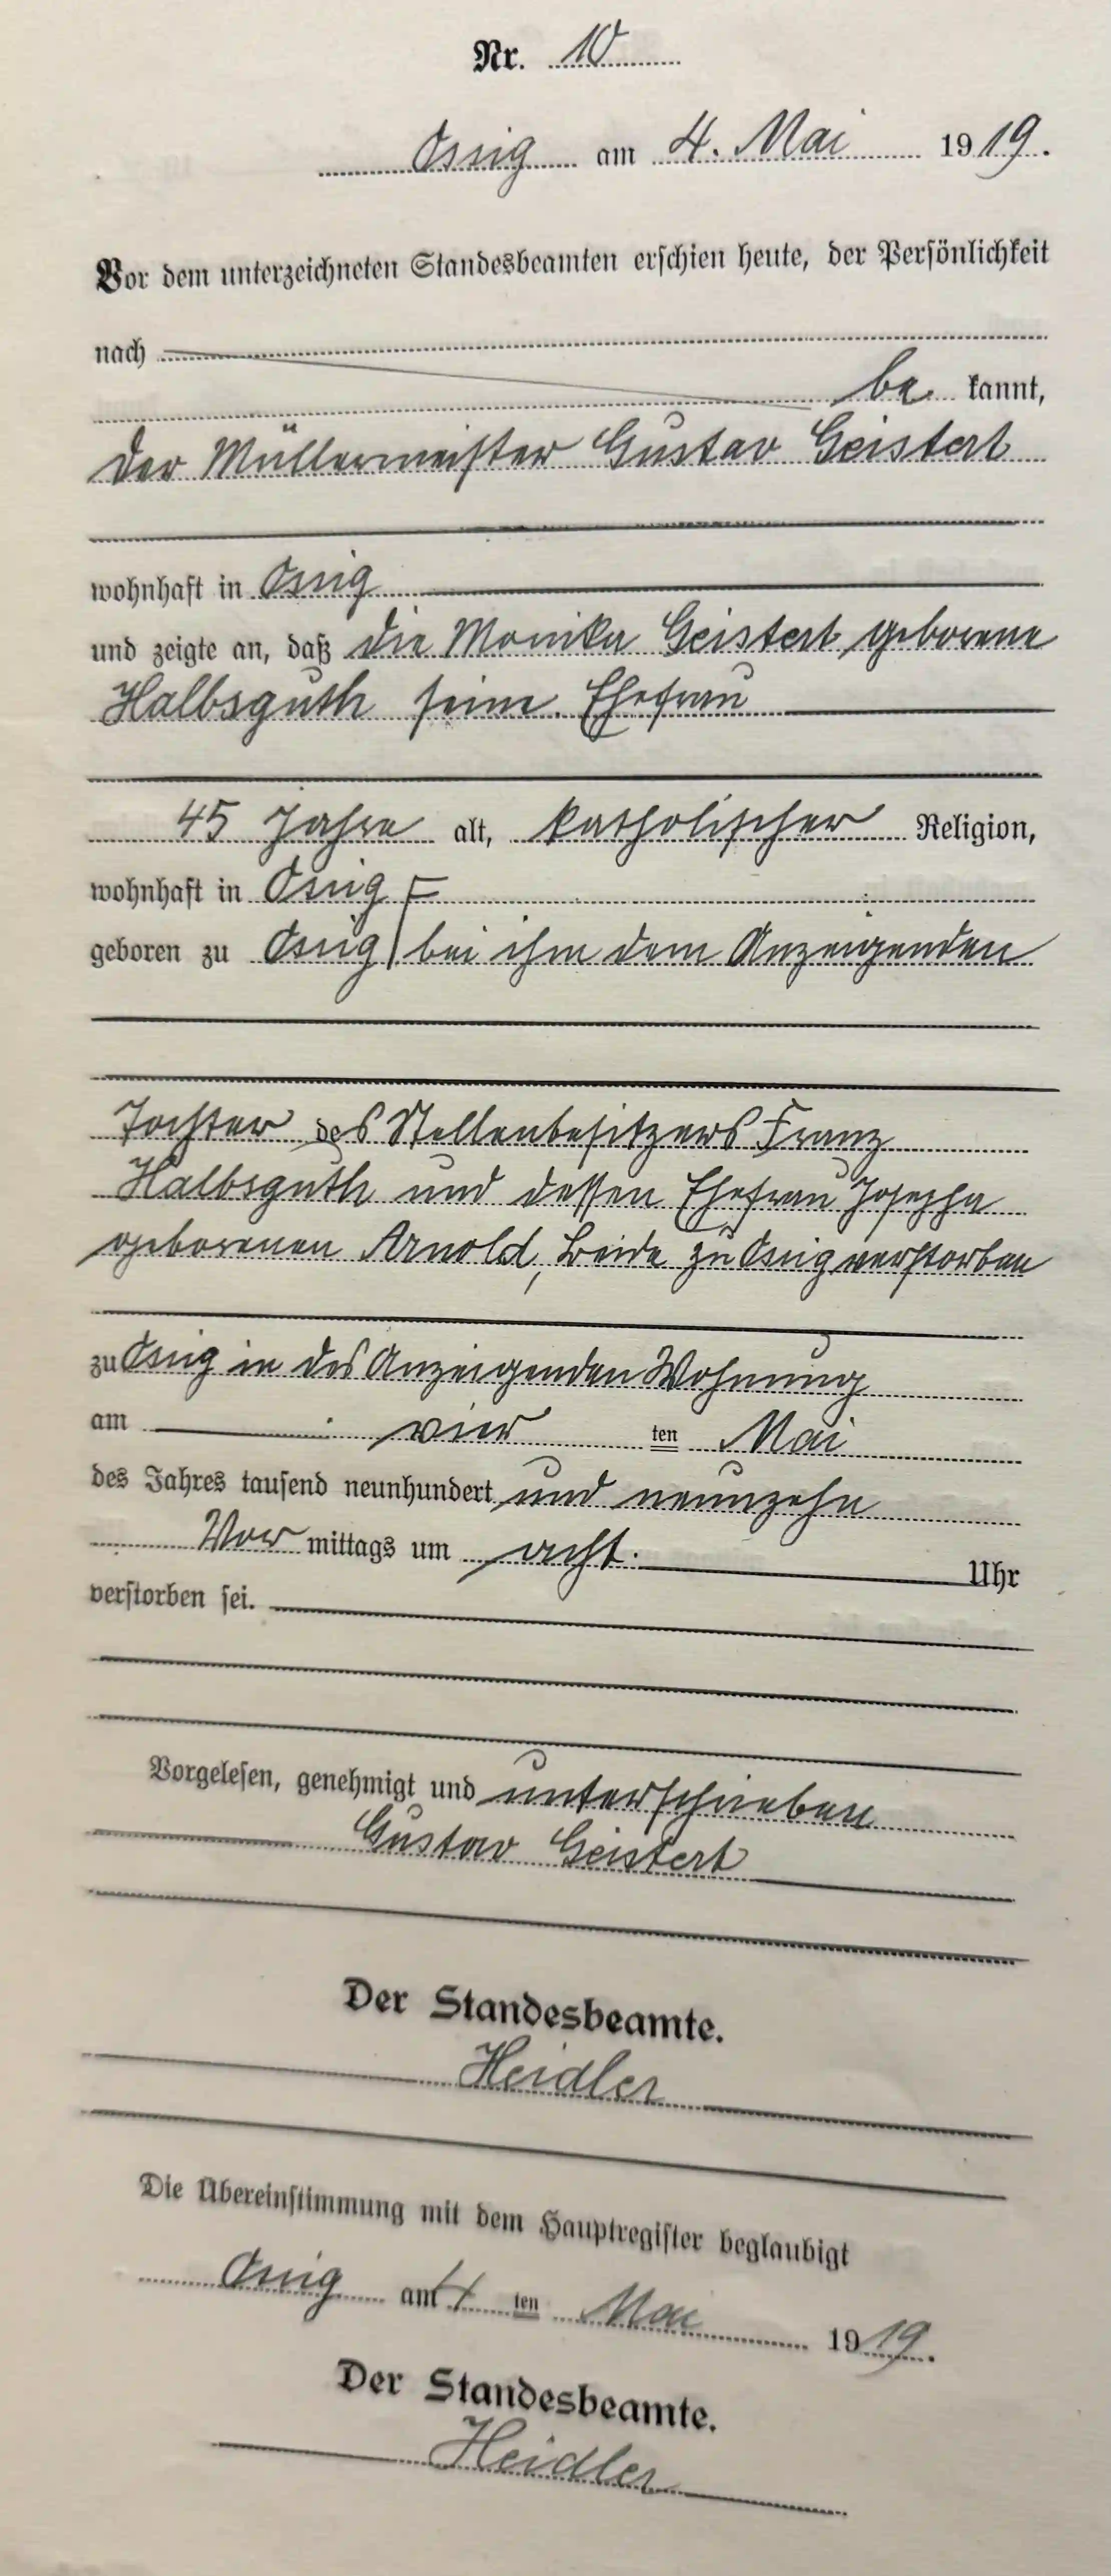 Nr. 10
Ossig am 4. Mai 1919.
Vor dem unterzeichneten Standesbeamten erschien heute, der Persönlichkeit
nach
be kannt,
der Müllermeister Gustav Geistert
wohnhaft in Ossig
und zeigte an, daß die Monika Geistert geborene
Halbsguth seine Ehefrau
45 Jahre alt, katholischer Religion,
wohnhaft in Ossig
geboren zu Ossig bei ihm dem Anzeigenden
Tochter des Stellenbesitzers Franz
Halbsguth und dessen Ehefrau Josepha
geborenen Arnold, beide zu Ossig verstorben
zu Ossig in des Anzeigenden Wohnung
am vier ten Mai
des Jahres tausend neunhundert und neunzehn
Vor mittags um acht Uhr
verstorben sei.
Vorgelesen, genehmigt und unterschrieben
Gustav Geistert
Der Standesbeamte.
Heidler
Die Übereinstimmung mit dem Hauptregister beglaubigt
Ossig am 4 ten Mai 1919.
Der Standesbeamte.
Heidler